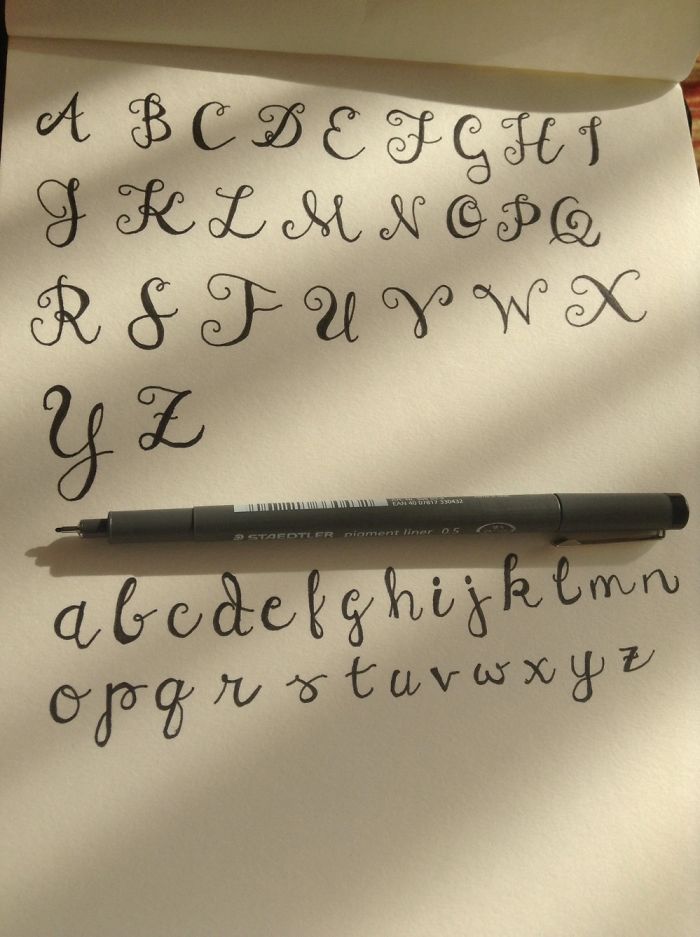 A B C D E F G H I
J K L M N O P Q
R S T U V W X
Y Z
EAN 40 07817 330432
STAEDTLER pigment liner 0.5
a b c d e f g h i j k l m n
o p q r s t u v w x y z